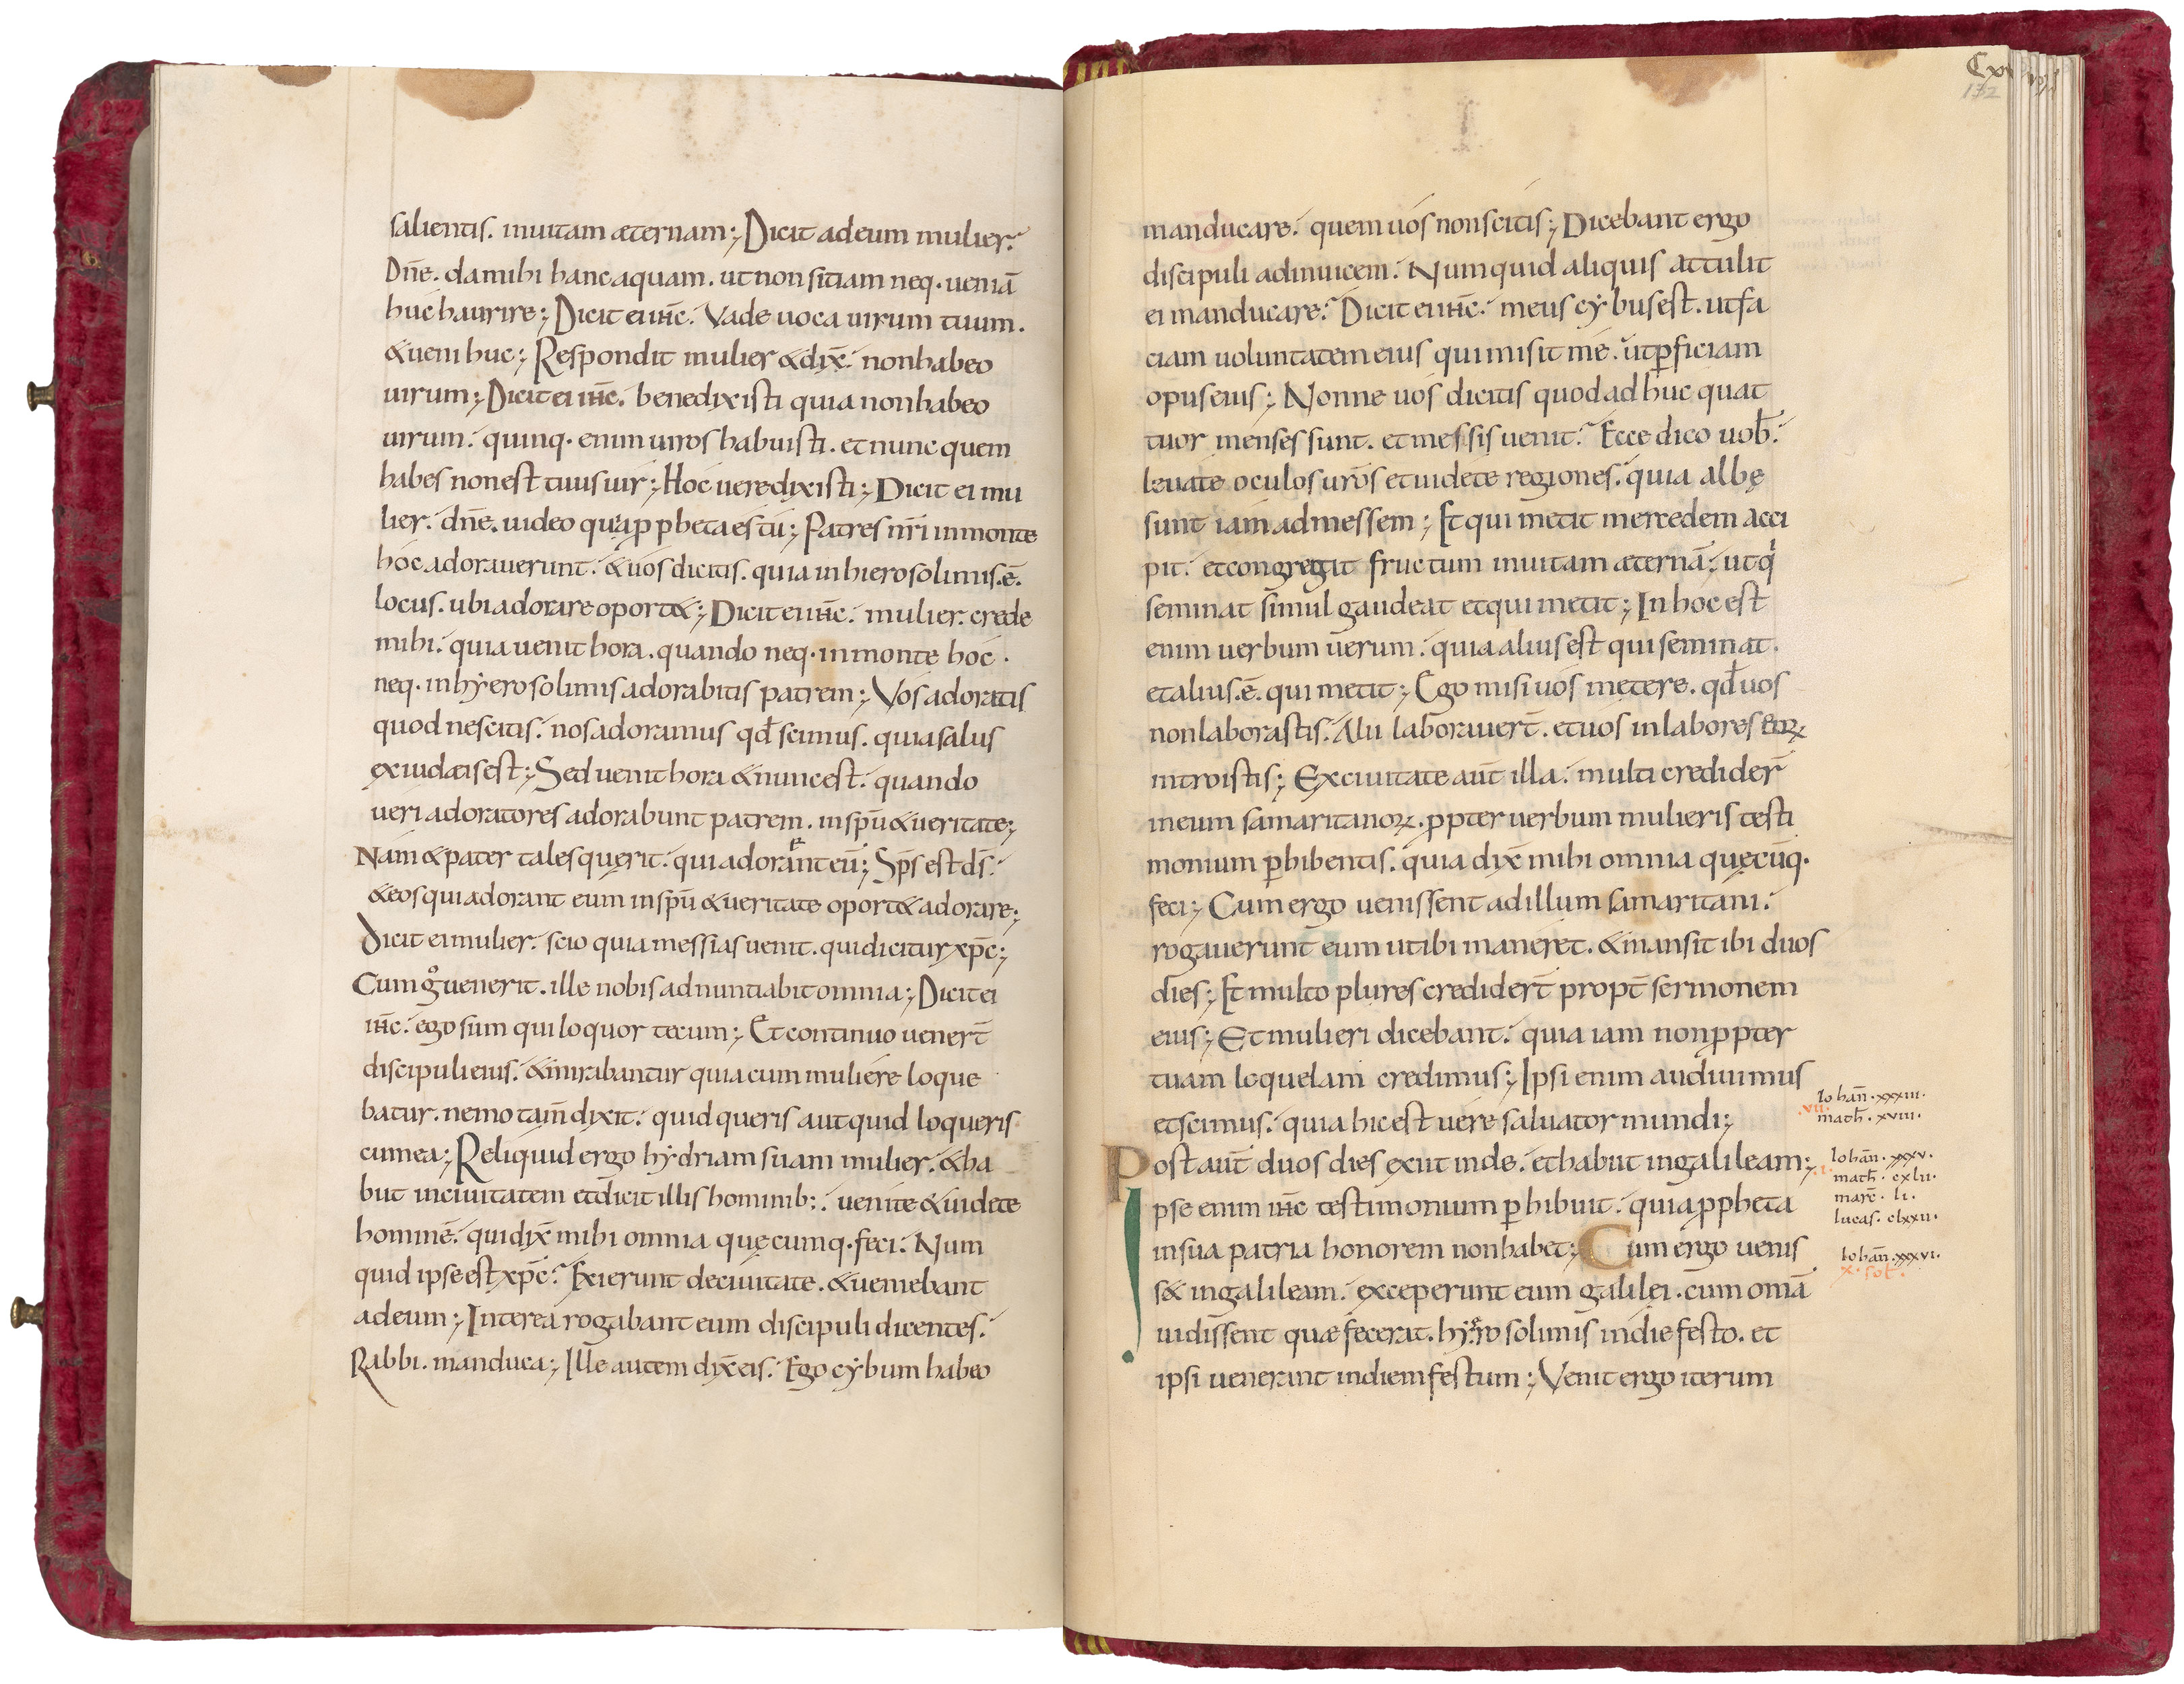 salientis. inuitam æternam; Dicit adeum mulier.
Dn̄e. damihi hanc aquam. ut non sitiam neq. ueniā
huc haurire; Dicit ei ihc̄. Vade uoca uirum tuum.
& ueni huc; Respondit mulier & dix̄. non habeo
uirum; Dicit ei ihc̄. benedixisti quia non habeo
uirum. quinq. enim uiros habuisti. et nunc quem
habes non est tuus uir; Hoc uere dixisti; Dicit ei mu
lier. dn̄e. uideo quia ppheta es tu; Patres nr̄i in monte
hoc adorauerunt. & uos dicitis. quia in hierosolimis .ē.
locus. ubi adorare oport&; Dicit ei ihc̄. mulier. crede
mihi. quia uenit hora. quando neq. in monte hoc.
neq. in hyerosolimis adorabitis patrem; Vos adoratis
quod nescitis. nos adoramus qd̄ scimus. quia salus
ex iudæis est; Sed uenit hora & nunc est. quando
ueri adoratores adorabunt patrem. in spū & ueritate;
Nam & pater tales quęrit. qui adorent eū; Sps̄ est ds̄.
& eos qui adorant eum in spū & ueritate oport& adorare;
Dicit ei mulier. scio quia messias uenit. qui dicitur xpc̄;
Cum gͦ uenerit. ille nobis adnuntiabit omnia; Dicit ei
ihc̄. ego sum qui loquor tecum; Et continuo uener̄t
discipuli eius. & mirabantur quia cum muliere loque
batur. nemo tam̄ dixit. quid queris aut quid loqueris
cum ea; Reliquid ergo hydriam suam mulier. & ha
biit in ciuitatem et dicit illis hominib:. uenite & uidete
hominē. qui dix̄ mihi omnia quęcumq. feci. Num
quid ipse est xpc̄. Exierunt de ciuitate. & ueniebant
ad eum; Interea rogabant eum discipuli dicentes.
Rabbi. manduca; Ille autem dix̄ eis. Ego cybum habeo
Cx
132
manducare. quem uos non scitis; Dicebant ergo
discipuli adinuicem. Numquid aliquis attulit
ei manducare. Dicit ei ihc̄. meus cybus est. ut fa
ciam uoluntatem eius qui misit me. ut pficiam
opus eius; Nonne uos dicitis quod ad huc quat
tuor menses sunt. et messis uenit. Ecce dico uob̄.
leuate oculos ur̄os et uidete regiones. quia albę
sunt iam ad messem; Et qui metit mercedem acci
pit. et congregat fructum in uitam æternā; ut qi
seminat simul gaudeat et qui metit; In hoc est
enim uerbum uerum. quia alius est qui seminat.
et alius .ē. qui metit; Ego misi uos metere. qd̄ uos
non laborastis. Alii laborauer̄t. et uos in labores eoꝝ
introistis; Ex ciuitate aut̄ illa. multi credider̄
in eum samaritanoꝝ. ppter uerbum mulieris testi
monium phibentis. quia dix̄ mihi omnia quęcūq.
feci; Cum ergo uenissent ad illum samaritani.
rogauerunt eum ut ibi maneret. & mansit ibi duos
dies; Et multo plures credider̄t propt̄ sermonem
eius; Et mulieri dicebant. quia iam non ppter
tuam loquelam credimus; Ipsi enim audiuimus
et scimus. quia hic est uere saluator mundi;
Post aut̄ duos dies exiit inde. et habiit in galileam;
Ipse enim ihc̄ testimonium phibuit. quia ppheta
in sua patria honorem non habet; Cum ergo uenis
s& in galileam. exceperunt eum galilei. cum omīa
uidissent quæ fecerat. hyerosolimis in die festo. et
ipsi uenerant in diem festum; Venit ergo iterum
.vii. Iohan̄. xxxiii.
math̄. xviii.
.i. Iohan̄. xxxv.
math̄. cxlii.
marc̄. li.
lucas. clxxii.
Iohan̄. xxxvi.
x. sol̄.